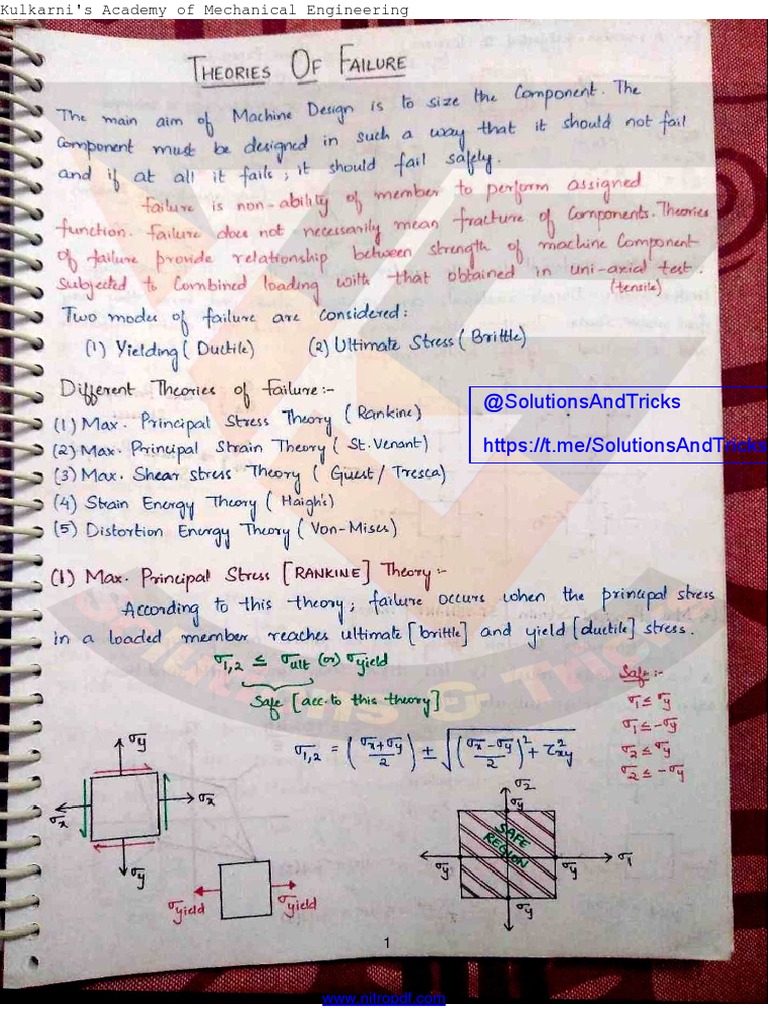 Kulkarni's Academy of Mechanical Engineering
THEORIES OF FAILURE
The main aim of Machine Design is to size the Component. The
Component must be designed in such a way that it should not fail
and if at all it fails; it should fail safely.
failure is non-ability of member to perform assigned
function. failure does not necessarily mean fracture of Components. Theories
of failure provide relationship between strength of machine Component
Subjected to Combined loading with that obtained in uni-axial test.
(tensile)
Two modes of failure are Considered:
(1) Yielding (Ductile) (2) Ultimate Stress (Brittle)
Different Theories of Failure:-
@SolutionsAndTricks
(1) Max. Principal Stress Theory (Rankine)
https://t.me/SolutionsAndTricks
(2) Max. Principal Strain Theory (St. Venant)
(3) Max. Shear stress Theory (Guest/Tresca)
(4) Strain Energy Theory (Haigh's)
(5) Distortion Energy Theory (Von-Mises)
(1) Max. Principal Stress [RANKINE] Theory:-
According to this theory; failure occurs when the principal stress
in a loaded member reaches ultimate [brittle] and yield [ductile] stress.
σ1,2 ≤ σult (or) σyield
Safe [acc. to this theory]
Safe:-
σ1 ≤ σy
σ1 ≤ -σy
σ2 ≤ σy
σ2 ≤ -σy
σ1,2 = ((σx+σy)/2) ± √(((σx-σy)/2)² + τ²xy)
σy
σx
σx
σy
σyield
σyield
σ2
σy
SAFE
REGION
σy
σy
σ1
σy
1
www.nitropdf.com